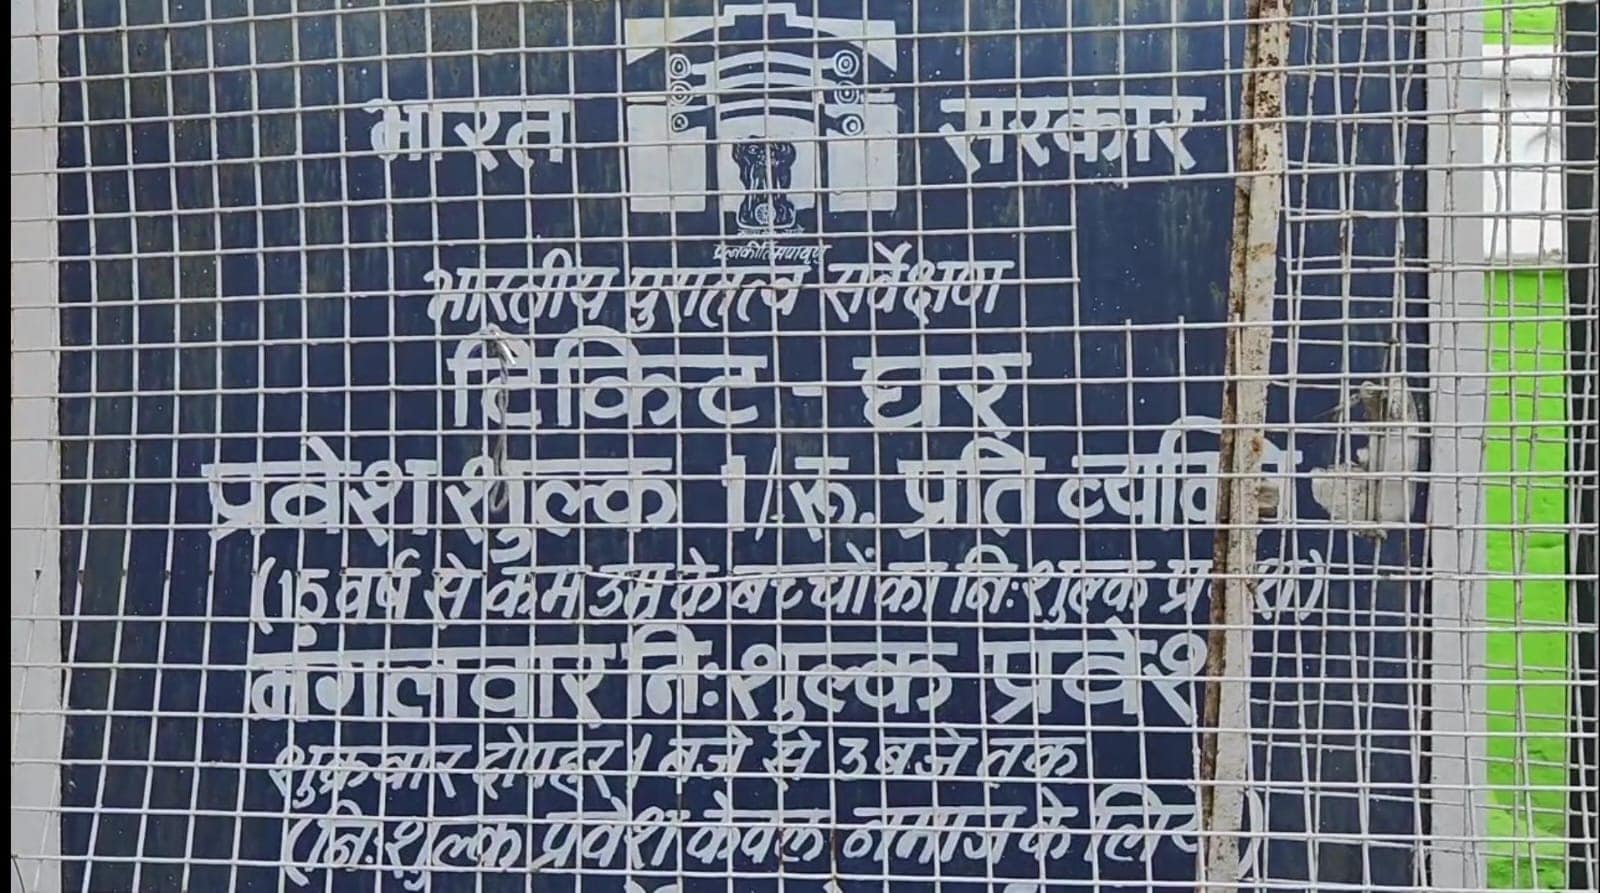 भारत सरकार
प्रत्नकीर्तिमपावृणु
भारतीय पुरातत्व सर्वेक्षण
टिकिट - घर
प्रवेश शुल्क 1/- रू. प्रति व्यक्ति
(15 वर्ष से कम उम्र के बच्चों का निःशुल्क प्रवेश)
मंगलवार निःशुल्क प्रवेश
शुक्रवार दोपहर 1 बजे से 3 बजे तक
(निःशुल्क प्रवेश केवल नमाज के लिये)